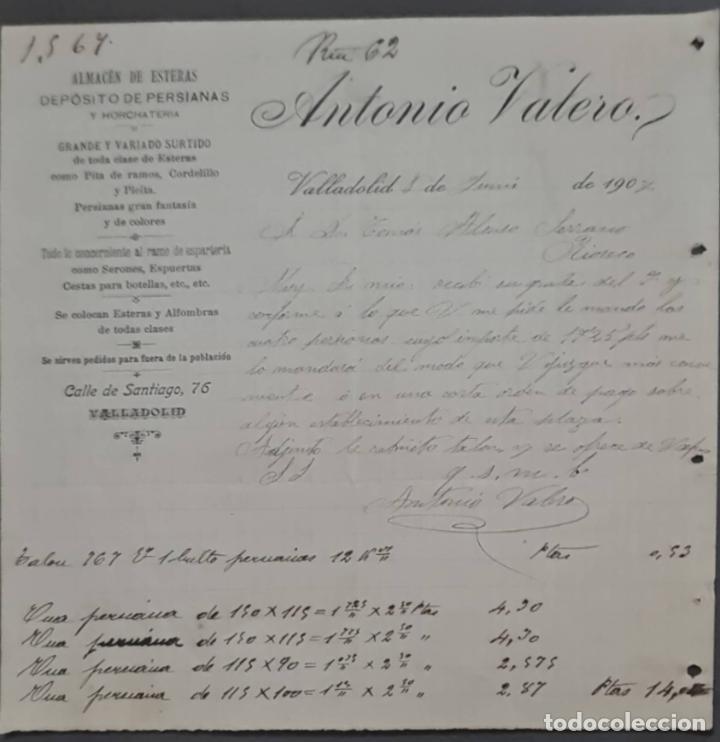 1,567.
Rtu 62
ALMACÉN DE ESTERAS
DEPÓSITO DE PERSIANAS
Y HORCHATERIA
GRANDE Y VARIADO SURTIDO
de toda clase de Esteras
como Pita de ramos, Cordelillo
y Pleita.
Persianas gran fantasía
y de colores
Todo lo concerniente al ramo de espartería
como Serones, Espuertas
Cestas para botellas, etc., etc.
Se colocan Esteras y Alfombras
de todas clases
Se sirven pedidos para fuera de la población
Calle de Santiago, 76
VALLADOLID
Antonio Valero.
Valladolid 8 de Junio de 1907
S. Don Tomás Alonso Serrano
Rioseco
Muy Sr mio: recibí su grata del 7 y
conforme á lo que V me pide le mando las
cuatro persianas cuyo importe de me
lo mandará del modo que V juzgue mas conve
niente ó en una corta orden de pago sobre
algún establecimiento de esta plaza.
Adjunto le remito talon y se ofrece de V afmo
S S q. s. m. b
Antonio Valero
Talon 767 1 bulto persianas 12 K Ptas 0,53
Una persiana de 150 X 115 = 1 X 2 Ptas 4,30
Una persiana de 150 X 115 = 1 X 2 " 4,30
Una persiana de 115 X 90 = 1 X 2 " 2,575
Una persiana de 115 X 100 = 1 X 2 " 2,87 Ptas 14,
todocoleccion.net